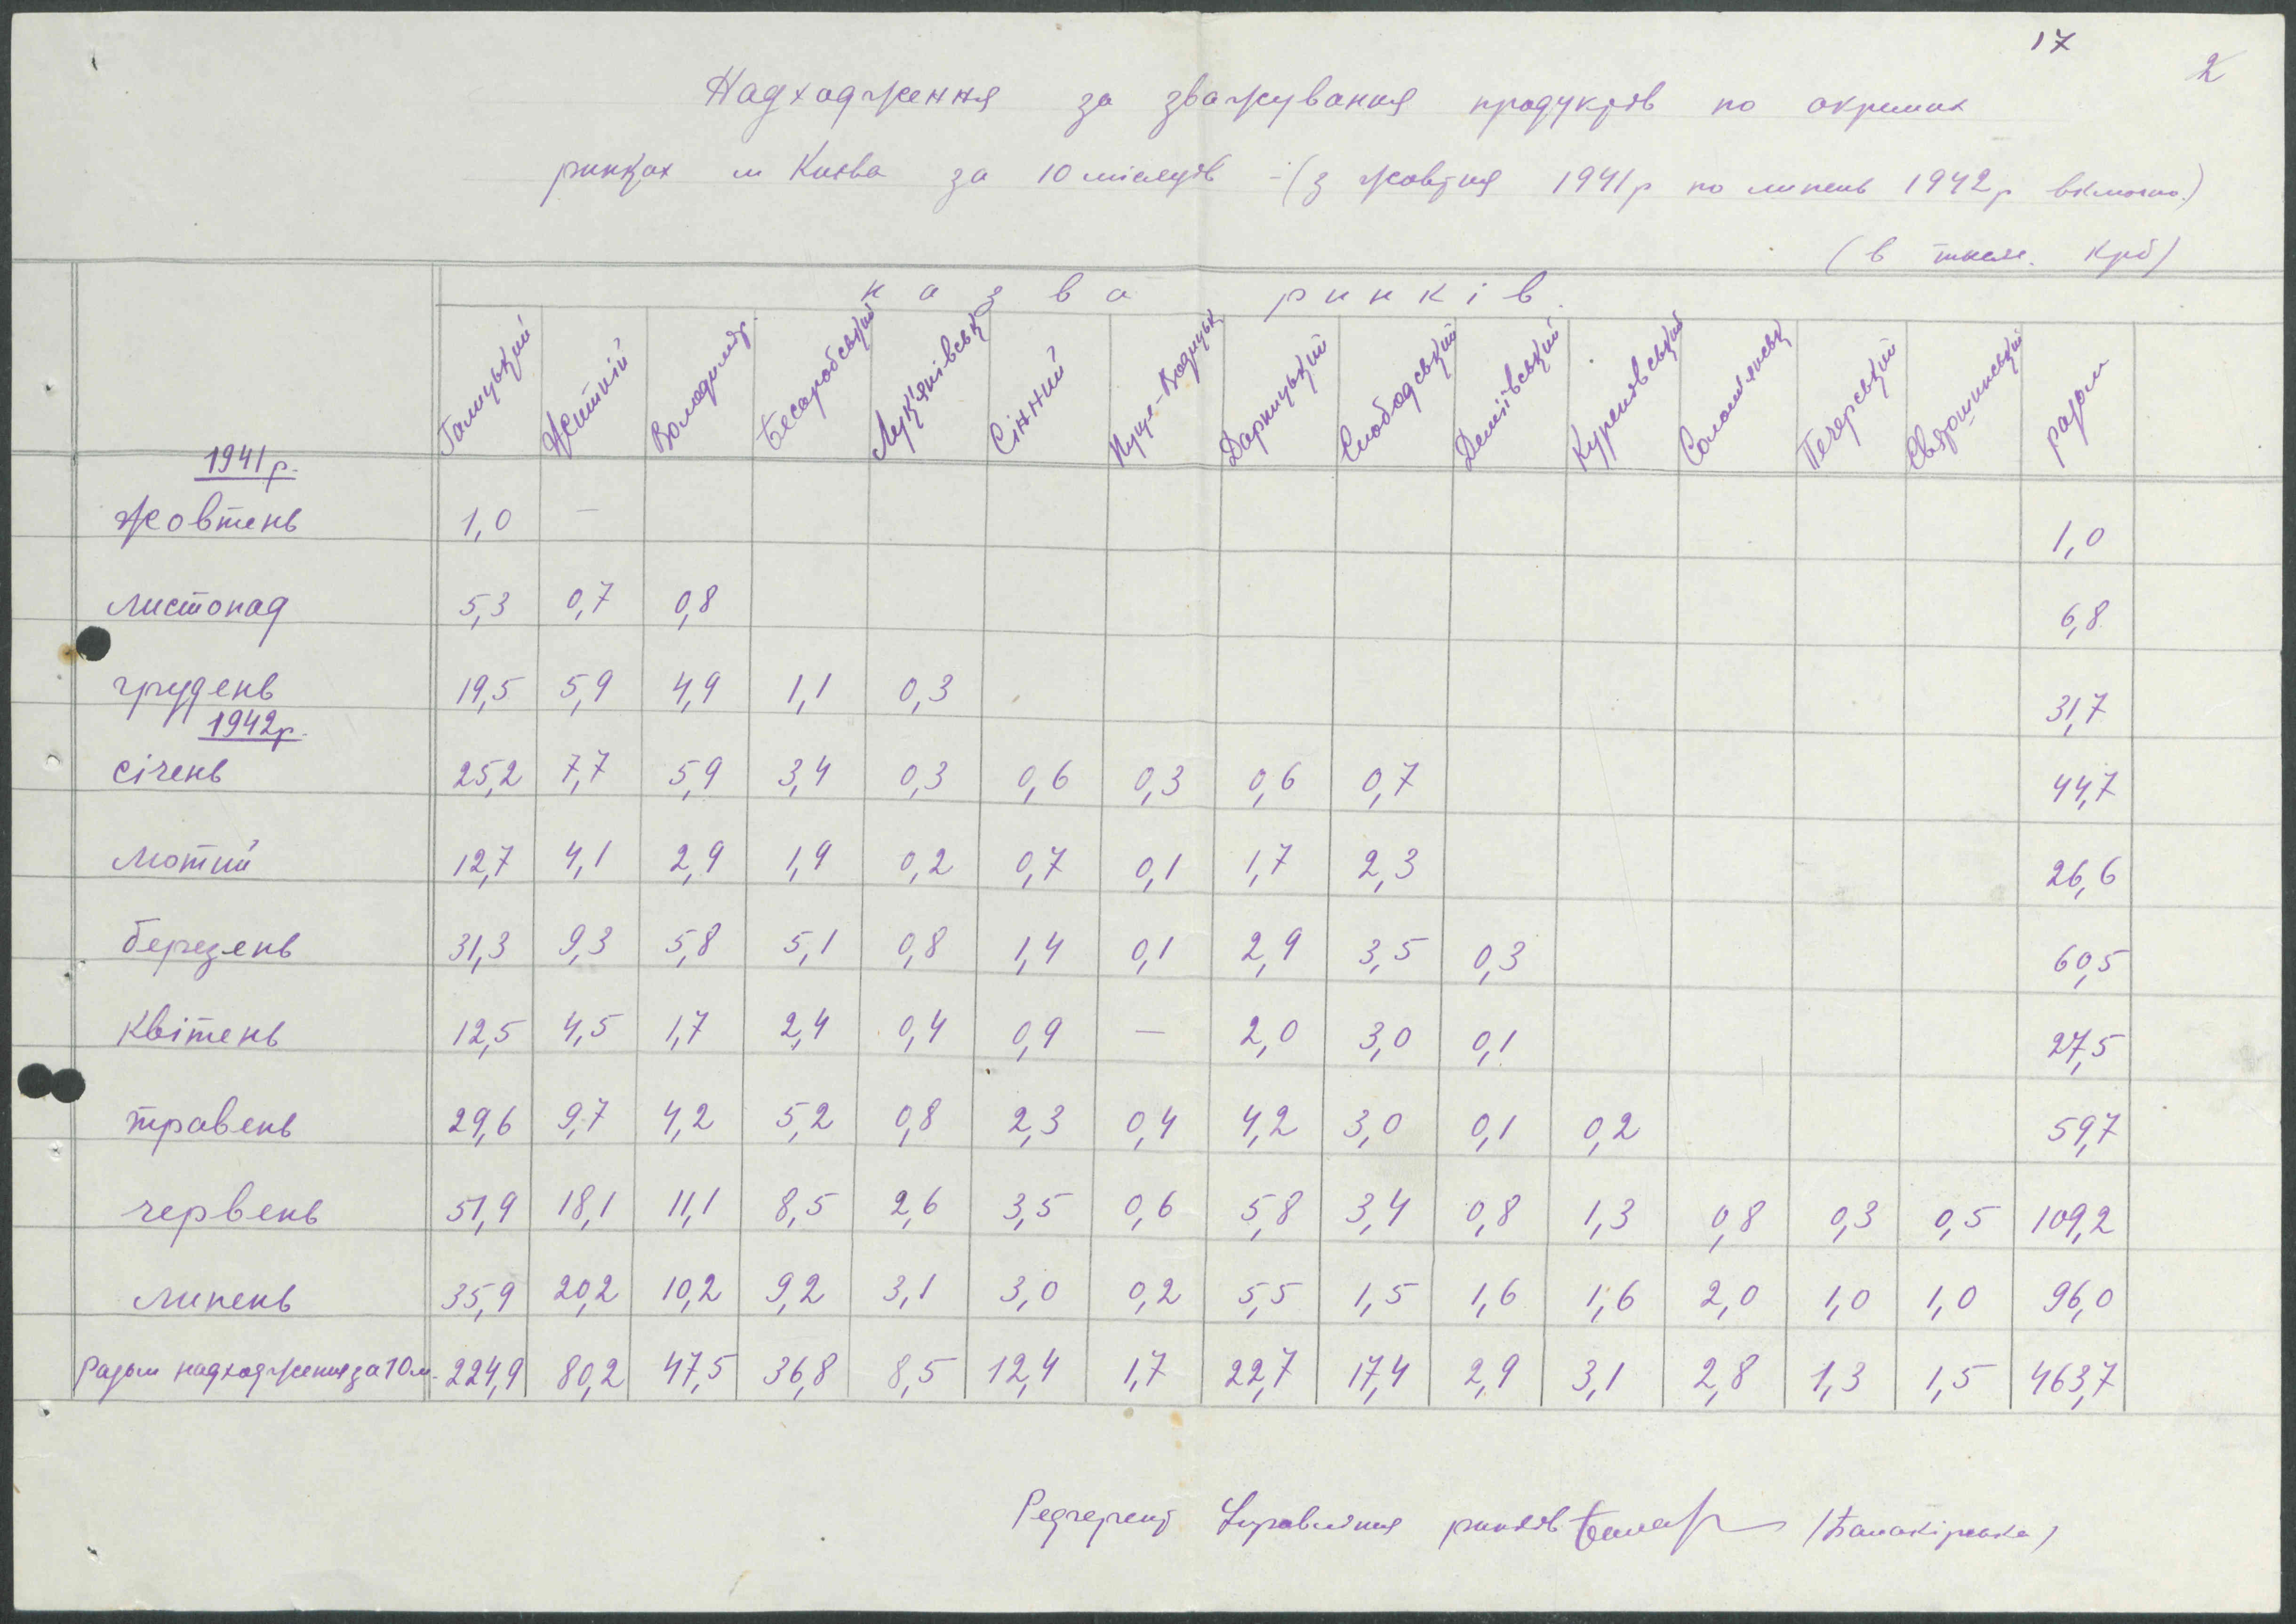 17
2
Надходження за зважування продуктів по окремих
ринках м Києва за 10 місяців - (з жовтня 1941р по липень 1942р включно.)
(в тисяч. крб)
назва ринків.
Галицький Житній Володимир. Бесарабський Лук'янівськ Сінний Пуща-Водицьк Дарницький Слободський Деміївський Куренівський Солом'янськ Печерський Святошинський разом
1941р.
жовтень 1,0 — 1,0
листопад 5,3 0,7 0,8 6,8
грудень 19,5 5,9 4,9 1,1 0,3 31,7
1942р.
січень 25,2 7,7 5,9 3,4 0,3 0,6 0,3 0,6 0,7 44,7
лютий 12,7 4,1 2,9 1,9 0,2 0,7 0,1 1,7 2,3 26,6
березень 31,3 9,3 5,8 5,1 0,8 1,4 0,1 2,9 3,5 0,3 60,5
квітень 12,5 4,5 1,7 2,4 0,4 0,9 — 2,0 3,0 0,1 27,5
травень 29,6 9,7 4,2 5,2 0,8 2,3 0,4 4,2 3,0 0,1 0,2 59,7
червень 51,9 18,1 11,1 8,5 2,6 3,5 0,6 5,8 3,4 0,8 1,3 0,8 0,3 0,5 109,2
липень 35,9 20,2 10,2 9,2 3,1 3,0 0,2 5,5 1,5 1,6 1,6 2,0 1,0 1,0 96,0
Разом надходження за 10 м. 224,9 80,2 47,5 36,8 8,5 12,4 1,7 22,7 17,4 2,9 3,1 2,8 1,3 1,5 463,7
Референт Управління ринків (Балакірська)